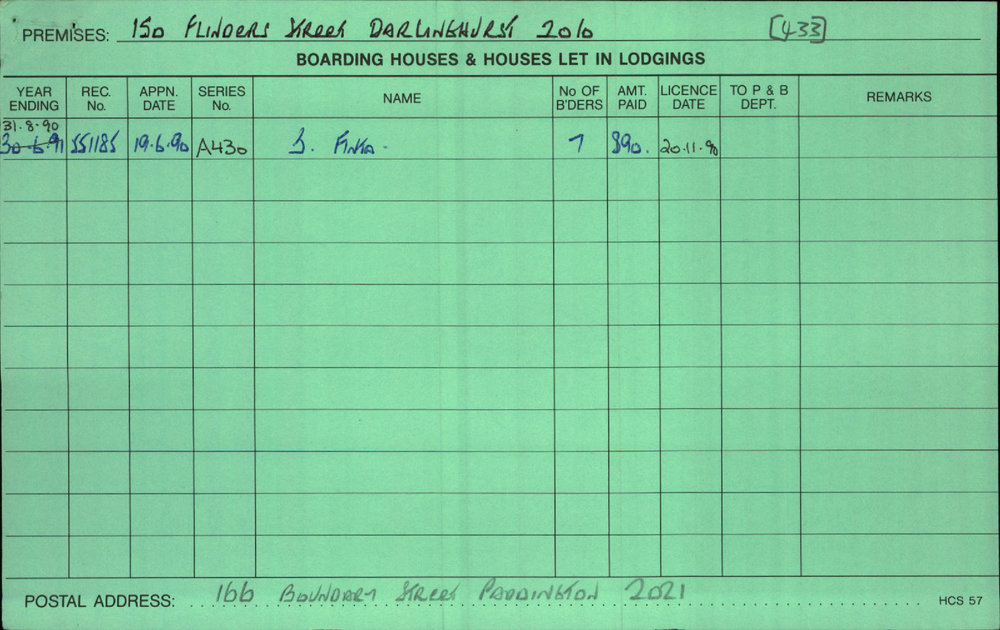 PREMISES: 150 FLINDERS STREET DARLINGHURST 2010 [433]
BOARDING HOUSES & HOUSES LET IN LODGINGS
YEAR ENDING REC. No. APPN. DATE SERIES No. NAME No OF B'DERS AMT. PAID LICENCE DATE TO P & B DEPT. REMARKS
31.8.90
30.6.91 551185 19.6.90 A430 7 $90. 20.11.90
POSTAL ADDRESS: 166 BOUNDARY STREET PADDINGTON 2021 HCS 57